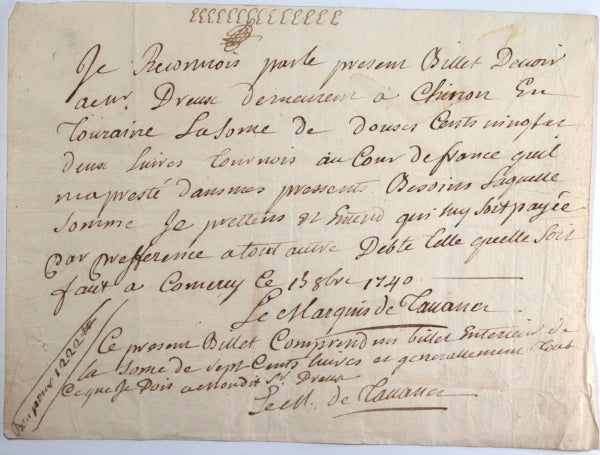 Je Reconnois par le present Billet Devoir
a mr. Dreux demeurent a Chinon En
Touraine La Some de douses Cents vingt et
deux Livres tournois au Cour de france quil
ma presté dans mes pressents Besoins Laquelle
Somme Je prettens et Entend qui luy soit payée
par prefference a tout autre Debte telle quelle Soit
fait a Comercy Ce 8bre 1740
Le Marquis de Tavanes
Ce present Billet Comprend un billet Enterieur de
la Some de sept Cents Livres et generallement tout
Ce que Je Dois a mondit Sr. Dreux
Le M. de Tavanes
Bon pour 1222 ₶